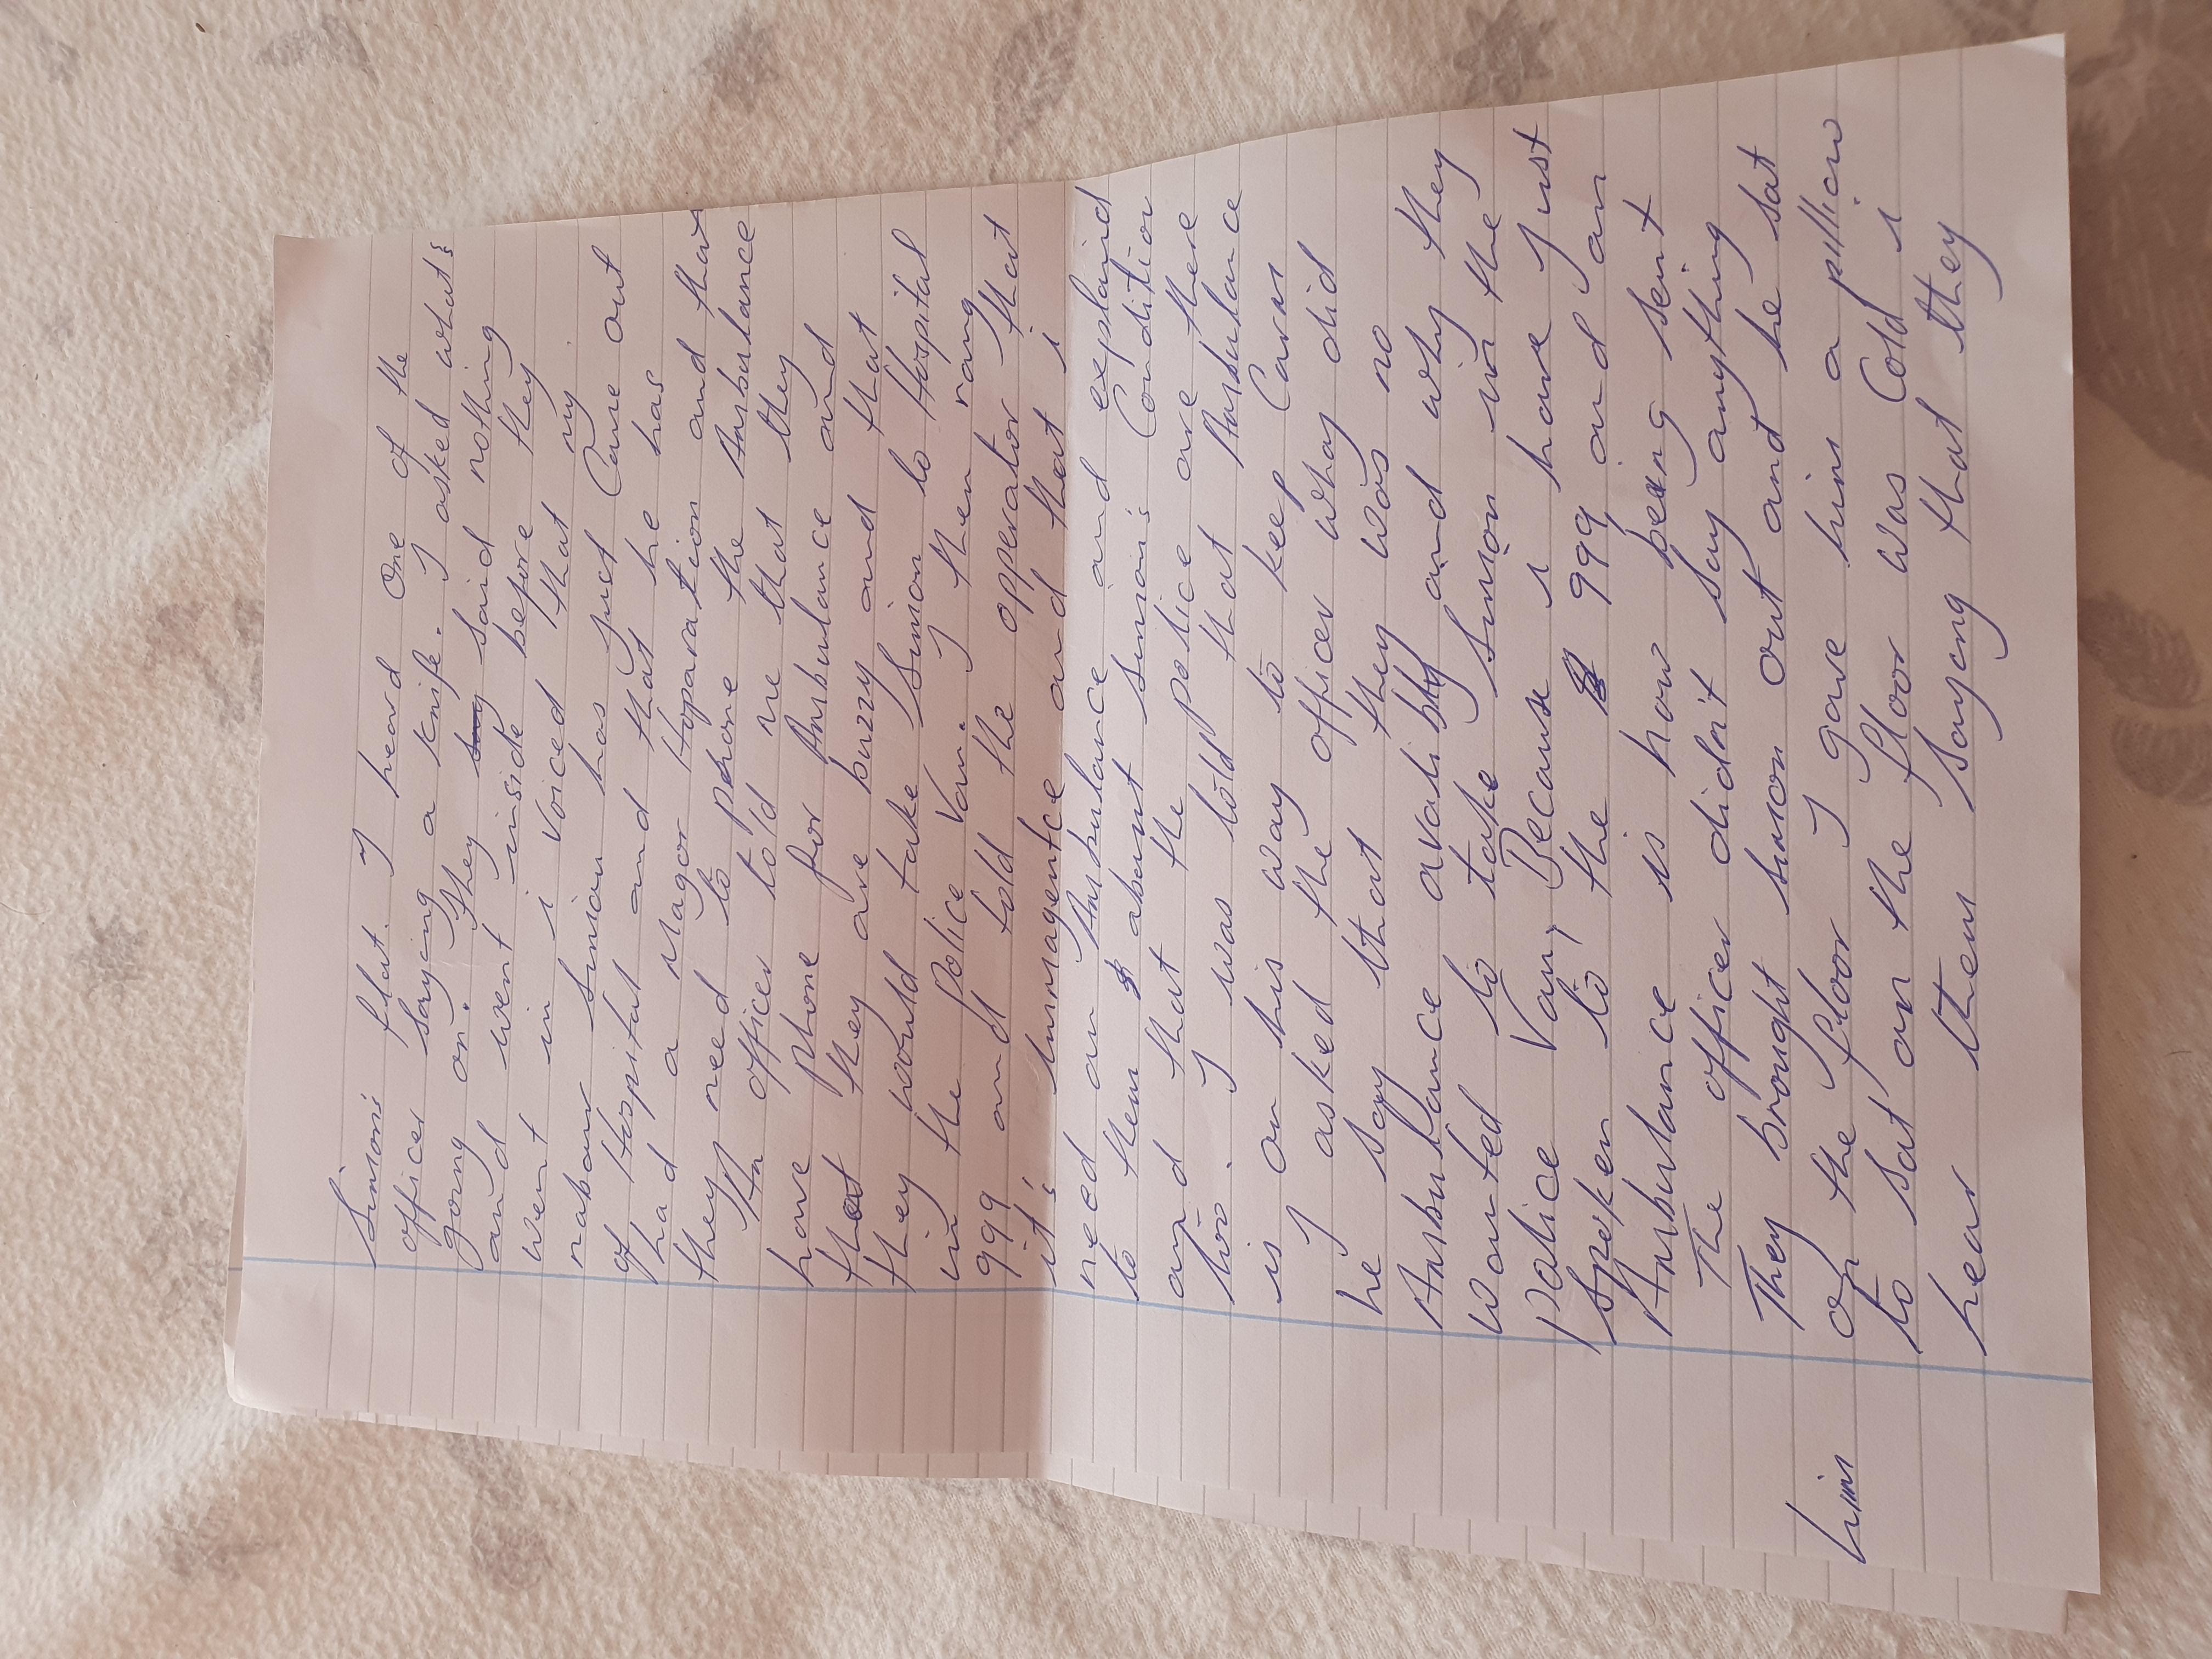 Simon's flat. I heard one of the
officer saying a knife. I asked what's
going on. They say said nothing
and went inside before they
went in i voiced that my
nabour Simion has just Came out
of Hospital and that he has
had a Magor Hoparation and that
they need to phone the Ambulance
An officer told me that they
have phone for Ambulance and
that they are buzzy and that
they would take Simion to Hospital
in the Police Van. I then rang
999 and told the opperator that
it's Immagentce and that i
need an Ambulance and explaind
to them about Simion's Condition
and that the police are there
two. I was told that Ambulance
is on his way to keep Carm
I asked the officer whay did
he say that they was no
Ambulance avalibity and why they
wonted to take Simion in the
Police Van, Because i have just
spoken to the 999 and an
Ambulance is now being sent
The officer didn't say anything
They brought Simon out and he sat
on the floor I gave him a pillicw
him to sat on the floor was Cold i
hear them saying that they